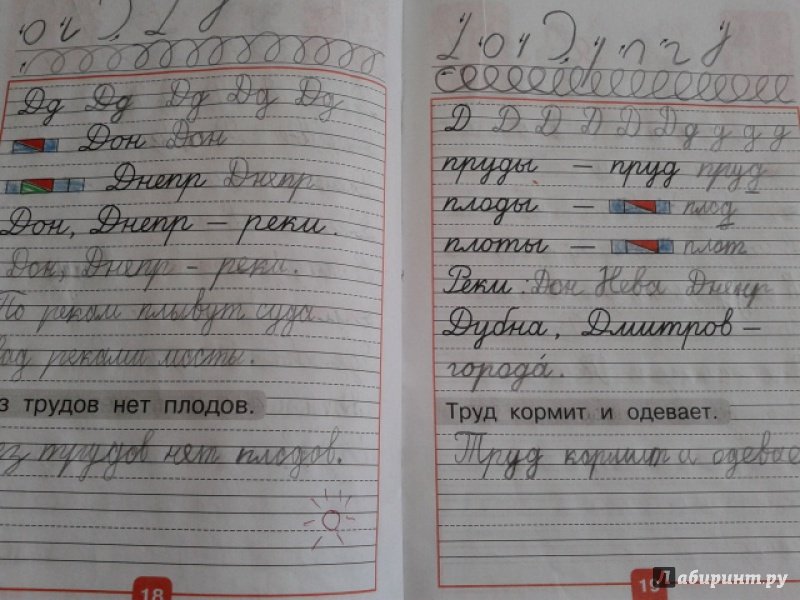 Дд Дд Дд Дд Дд
Дон Дон
Днепр Днепр
Дон, Днепр – реки.
Дон, Днепр – реки.
По рекам плывут суда
над реками мосты.
з трудов нет плодов.
ез трудов нет плодов.
18
Д Д Д Д Д Д д д д д
пруды – пруд пруд
плоды – плод
плоты – плот
Реки: Дон Нева Днепр
Дубна, Дмитров –
города.
Труд кормит и одевает.
Труд кормит и одевае
19
Лабиринт.ру